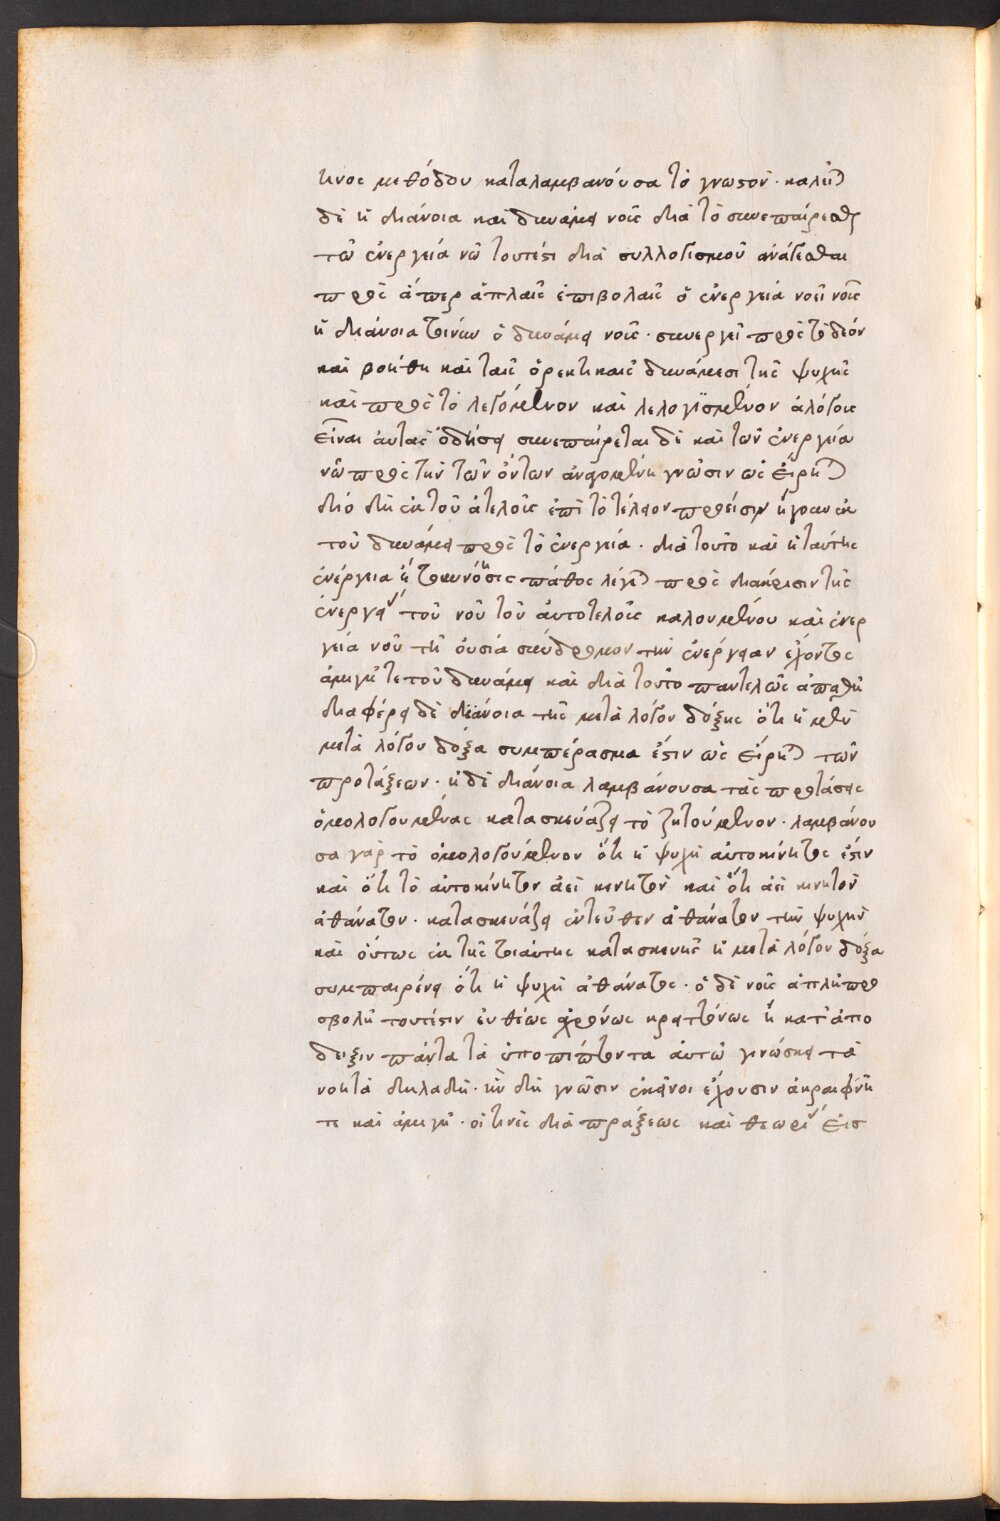 τινος μεθόδου καταλαμβανόυσα τὸ γνωστὸν · καλεῖται
δὲ ἡ διάνοια καὶ δυνάμει νοῦς διὰ τὸ συνεπαίρεσθαι
τῶ ἐνεργεία νῶ τουτέστι διὰ συλλογισμοῦ ἀνάγεσθαι
πρὸς ἅπερ ἁπλαῖς ἐπιβολαῖς ὁ ἐνεργεία νοεῖ νοῦς
ἡ διάνοια τοίνυν ὁ δυνάμει νοῦς · συνεργεῖ πρὸς τὸ δέον
καὶ βοηθεῖ καὶ ταῖς ὀρεκτικαῖς δυνάμεσι τῆς ψυχῆς
καὶ πρὸς τὸ λεγόμενον καὶ λελογισμένον ἀλόγους
εἶναι αὐτὰς ὁδηγεῖ συνεπαίρεται δὲ καὶ τῶν ἐνεργεία
νῶ πρὸς τὴν τῶν ὄντων ἀναγομένη γνῶσιν ὡς εἴρηται
διό δὴ ἐκ τοῦ ἀτελοῦς ἐπὶ τὸ τέλειον πρόεισιν ἤγουν ἐκ
τοῦ δυνάμει πρὸς τὸ ἐνεργεία · διὰ τοῦτο καὶ ἡ ταύτης
ἐνέργεια ἢ τοι κινόησις πάθος λέγεται πρὸς διαίρεσιν τῆς
ἐνεργείας τοῦ νοῦ τοῦ αὐτοτελοῦς καλουμένου καὶ ἐνερ
γεία νοῦ τῇ οὐσία σύνδρομον τὴν ἐνέργειαν ἔχοντος
ἀμιγῆ τε τοῦ δυνάμει καὶ διὰ τοῦτο παντελῶς ἀπαθῆ
διαφέρει δὲ διάνοια τῆς μετὰ λόγου δόξης ὅτι ἡ μὲν
μετὰ λόγου δόξα συμπέρασμα ἐστιν ὡς εἴρηται τῶν
προτάξεων · ἡ δὲ διάνοια λαμβάνουσα τὰς προτάσεις
ὁμολογουμένας κατασκευάζει τὸ ζητούμενον · λαμβάνου
σα γὰρ τὸ ὁμολογούμενον ὅτι ἡ ψυχὴ αὐτοκίνητος ἐστιν
καὶ ὅτι τὸ αὐτοκίνητον ἀεὶ κινητὸν καὶ ὅτι ἀεὶ κινητὸν
ἀθάνατον · κατασκευάζει ἐντεῦθεν ἀθάνατον τὴν ψυχὴν
καὶ οὕτως ἐκ τῆς τοιαύτης κατασκευῆς ἡ μετὰ λόγου δόξα
συμπαιρένει ὅτι ἡ ψυχὴ ἀθάνατος · ὁ δὲ νοῦς ἁπλῆ προ
σβολῆ τουτέστιν εὐθέως ἀχρόνως κρειττόνως ἢ κατ' ἀπο
δειξιν πάντα τὰ ὑποπίπτοντα αὐτῶ γινώσκει τὰ
νοητὰ δηλαδὴ · ἣν δὴ γνῶσιν ἐκεῖνοι ἔχουσιν ἀκραιφνῆ
τε καὶ ἀμιγῆ · οἵ τινες διὰ πράξεως καὶ θεωρίας εἰσ